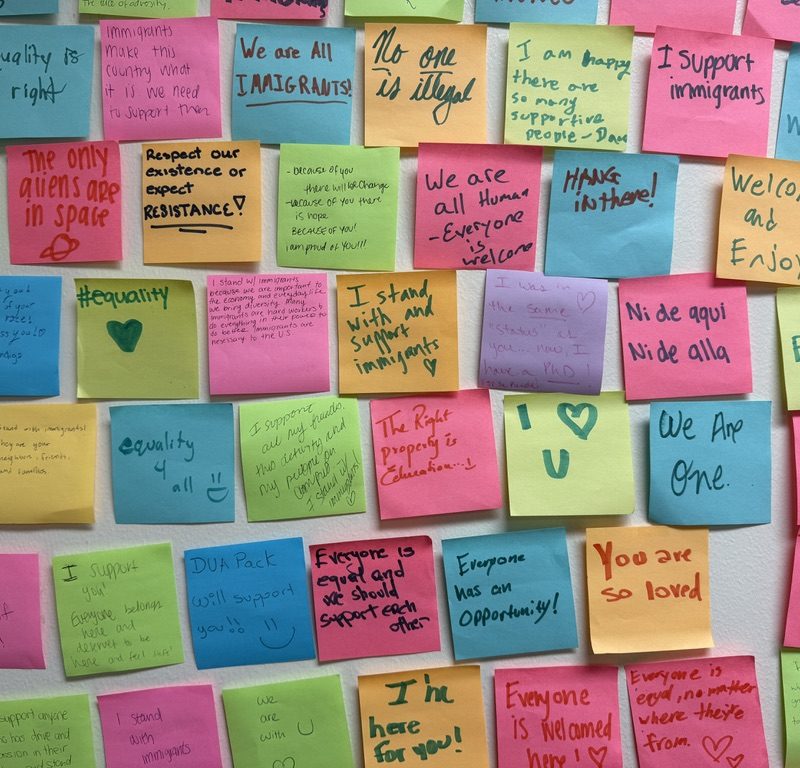 the face of adversity.
uality is
right
Immigrants
make this
country what
it is we need
to support them
We are All
IMMIGRANTS!
No one
is illegal
I am happy
there are
so many
supportive
people - Dan
I support
immigrants
The only
aliens are
in space
Respect our
existence or
expect
RESISTANCE!
- because of you
there will be change
- because of you there
is hope
BECAUSE OF YOU!
i am proud of YOU!!!
We are
all Human
- Everyone
is
welcome
HANG
in there!
Welco
and
Enjoy
#equality
I stand w/ immigrants
because we are important to
the economy and everyday life
we bring diversity. Many
immigrants are hard workers &
do everything in their power to
do better. Immigrants are
necessary to the U.S.
I stand
with and
support
immigrants
I was in
the same
"status" as
you... now, I
have a PhD!
Ni de aqui
Ni de alla
stand with immigrants!
They are your
neighbors, friends,
and families.
equality
4
all
I support
all my friends.
this country and
my
I stand w/
immigrants
The Right
property is
Education...!
I ♡
U
We Are
One.
I support
you!
Everyone belongs
here and
deserves to be
here and feel safe!
DUA Pack
will support
you!!
Everyone is
equal and
we should
support each
other
Everyone
has an
opportunity!
You are
so loved
support anyone
has drive and
ssion in their
stand
I stand
with
immigrants
we
are
with U
I'm
here
for you!
Everyone
is welcomed
here! ♡
Everyone is
equal, no matter
where they're
from.